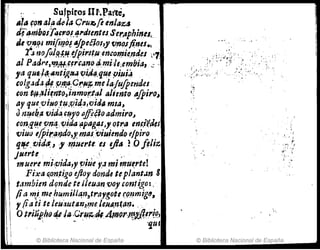 Suspiros III. Parte,
ala con ala de la Cruz se enlaza
de ambos sacros ardientes Seraphines.
de unos mismos aspectos, y unos fines.
Ya no solo tu espiritu encomiendes
al Padre, mas cercano à mi le embia,
ya que la antigua vida que viuia
colgada de una Cruz me la suspendes
con tu aliento, inmortal aliento aspiro,
ay que viuo tu vida, vida mia,
ò nueba vida cuyo affecto admiro,
con que una vida apagas, y otra enciẽdes!
viuo espirando, y mas viuiendo espiro
que vida, y muerte es esta ? O feliz
suerte
muere mi vida, y viue ya mi muerte!
Fixa contigo estoy donde te plantan
tambien donde te lleuan voy contigo,
si a mi me humillan, traygote conmigo,
y si a ti te leuantan, me leuantan.
O triüpho de la Cruz de Amor mysterio,
que
© Biblioteca Nacional de España
© Biblioteca Nacional de España